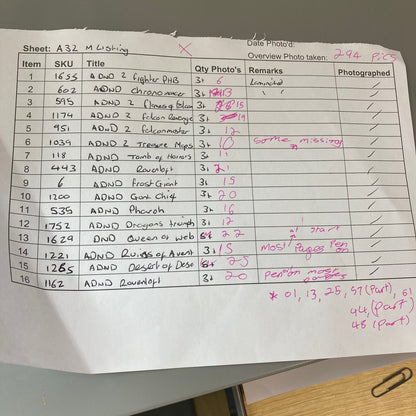 Sheet: A32 M Listing X Date Photo'd:
Overview Photo taken: 294 Pics
Item SKU Title Qty Photo's Remarks Photographed
1 1655 ADND 2 fighter PHB 3+ 6 Laminated /
2 602 ADND chronomancer 3+ 13 " " /
3 595 ADND 2 3+ 15 /
4 1174 ADND 2 Falcon Revenge 3+ 19 /
5 951 ADND 2 Falconmaster 3+ 12 /
6 1039 ADND 2 Treasure Maps 3+ 10 Some missing /
7 118 ADND Tomb of Horrors 3+ 11 /
8 443 ADND Ravenloft 3+ 21 /
9 6 ADND Frost Giant 3+ 15 /
10 1200 ADND Giant Chief 3+ 20 /
11 535 ADND Pharoah 3+ 16 /
12 1752 ADND Dragons triumph 3+ 12 /
13 1629 DND Queen of Web 22 at start /
14 1221 ADND Ruins of 3+ 15 Most Pages Pen on /
15 1265 ADND Desert of Deso 25 /
16 1162 ADND Ravenloft 3+ 20 Pen on most pages /
* 01, 13, 25, 57 (Part), 61
44, (Part)
48 (Part)